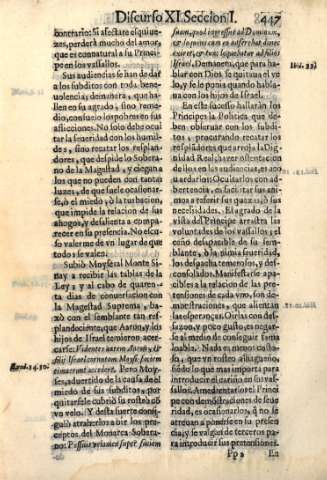 Discurso XI. Seccion I.
447
contrario: Si afectare esquiue-
zes, perderà mucho del amor,
que es connatural a su Princi-
pe en los vassallos.
Sus audiencias se han de dar
a los subditos con toda bene-
uolencia; de manera, que ha-
llen en su agrado, sino reme-
dio, consuelo los pobres en sus
aflicciones. No solo debe ocul-
tar la crueldad con los humil-
des, sino retratar los resplan-
dores, que despide lo Sobera-
no de la Magestad, y ciegan a
los que no pueden con tanta
luzes, de que suele ocasionar-
se, ò el miedo, ò la turbacion,
que impide la relacion de sus
ahogos, y desalienta a compa-
recer en su presencia. No escu-
so valerme de vn lugar de que
todos se valen.
Subiò Moyses al Monte Si-
nay a recibir las tablas de la
Ley, y al cabo de quaren-
ta dias de conuersacion con
la Magestad Suprema, ba-
xò con el semblante tan res-
plandeciente, que Aaron, y los
hijos de Israel temieron acer-
carse: Videntes autem Aaron, &
filij Israel cornutam Moysi faciem
timuerunt accedere. Pero Moy-
ses, aduertido de la causa del
miedo de sus subditos, por
quitarsele cubriò su rostro cõ
vn velo. Y desta suerte consi-
guiò atraherlos a oir los pre-
ceptos del Monarca Sobera-
no: Posuit velamen super faciem
Exod. 34. 30.
suam, quod ingressus ad Dominum,
& loquens cum eo auferebat donec
exiret, & tunc loquebatur ad filios
Israel. Demanera, que para ha-
blar con Dios se quitaua el ve
lo, y se le ponia quando habla-
ua con los hijos de Israel.
Ibid. 33.
En este sucesso hallaràn los
Principes la Politica que de-
ben obseruar con los subdi-
tos, procurando retratar los
resplandores que arroja la Dig-
nidad Real; hazer ostentacion
de los en las audiencias, es aco
uardarlos: Ocultarlos con ad-
bertencia, es facilitar sus ani-
mos a referir sus quexas, ò sus
necesidades. El agrado de la
vista del Principe arrastra las
voluntades de los vassallos; el
ceño desapacible de su sem-
blante, ò la nimia seueridad,
los despacha temerosos, y des-
consolados. Manifestarse apa-
cibles a la relacion de las pre-
tensiones de cada vno, son de-
mostraciones, que alientan
las esperanças: Oirlas con des-
azon, y poco gusto, es negar-
les al medio de conseguir fauora-
ble. Nada es menos costo-
so, que vn rostro alhagueño,
ni ay lo que mas importa para
introducir el cariño en los va-
sallos. Amedrantarlos el Princi
pe con demostraciones de seue-
ridad, es ocasionarlos, q no se
atreuan a ponersele en su pre-
sencia, y se valgan de terceros pa-
ra introducir sus pretensiones.
Pp 2
En